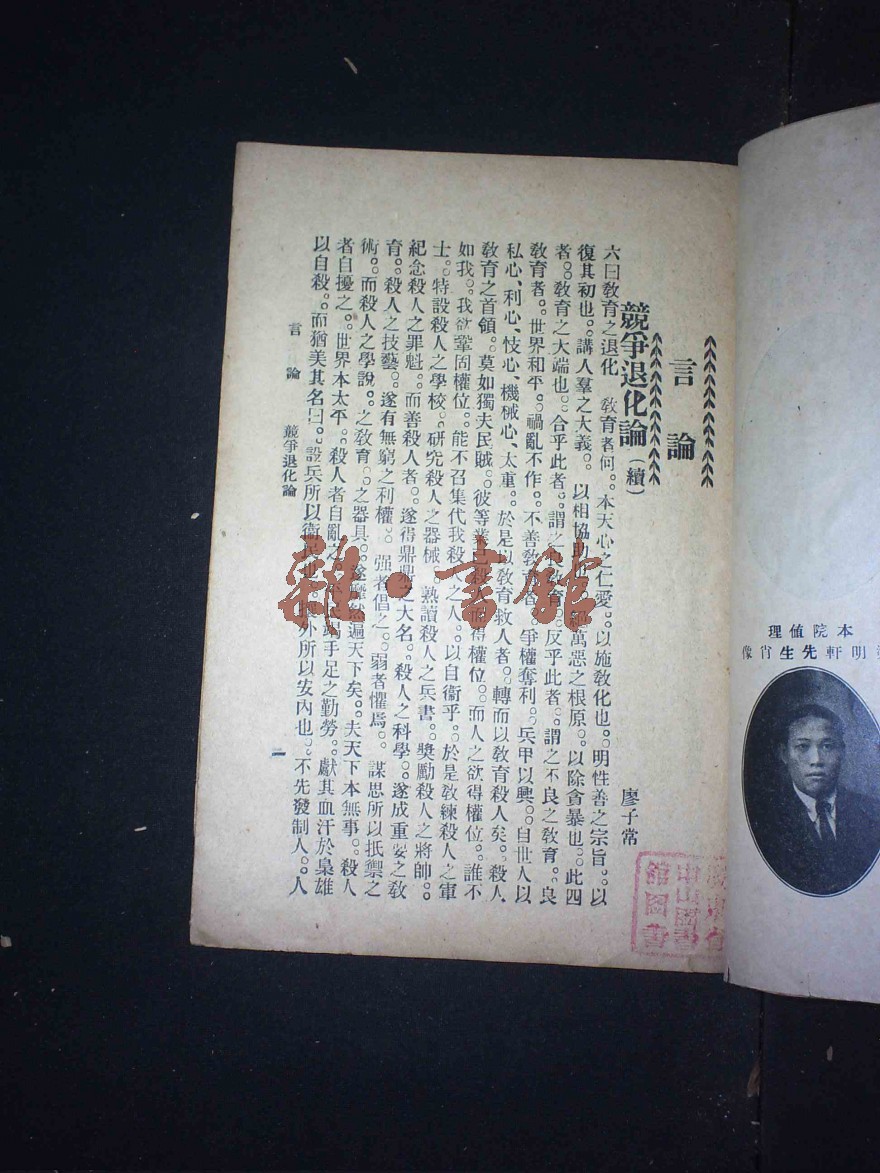 本院值理
明軒先生肖像
言論
競爭退化論（續）
廖子常
六曰敎育之退化　敎育者何。本天心之仁愛。以施敎化也。明性善之宗旨。以
復其初也。講人羣之大義。以相協助。絕萬惡之根原。以除貪暴也。此四
者。敎育之大端也。合乎此者。謂之良敎育。反乎此者。謂之不良之敎育。良
敎育者。世界和平。禍亂不作。不善敎育者。爭權奪利。兵甲以興。自世人以
私心、利心、忮心、機械心、太重。於是以敎育救人者。轉而以敎育殺人矣。殺人
敎育之首領。莫如獨夫民賊。彼等業已殺人而得權位。而人之欲得權位。誰不
如我。我欲鞏固權位。能不召集代我殺人之人。以自衞乎。於是敎練殺人之軍
士。特設殺人之學校。研究殺人之器械。熟讀殺人之兵書。獎勵殺人之將帥。
紀念殺人之罪魁。而善殺人者。遂得鼎鼎之大名。殺人之科學。遂成重要之敎
育。殺人之技藝。遂有無窮之利權。强者倡之。弱者懼焉。謀思所以抵禦之
術。而殺人之學說。之敎育。之器具。遂靡然遍天下矣。夫天下本無事。殺人
者自擾之。世界本太平。殺人者自亂之。手足之勤勞。獻其血汗於梟雄
以自殺。而猶美其名曰。設兵所以衞民也。外所以安內也。不先發制人。人
言論　競爭退化論
一
雜·書館
中山圖書
館圖書